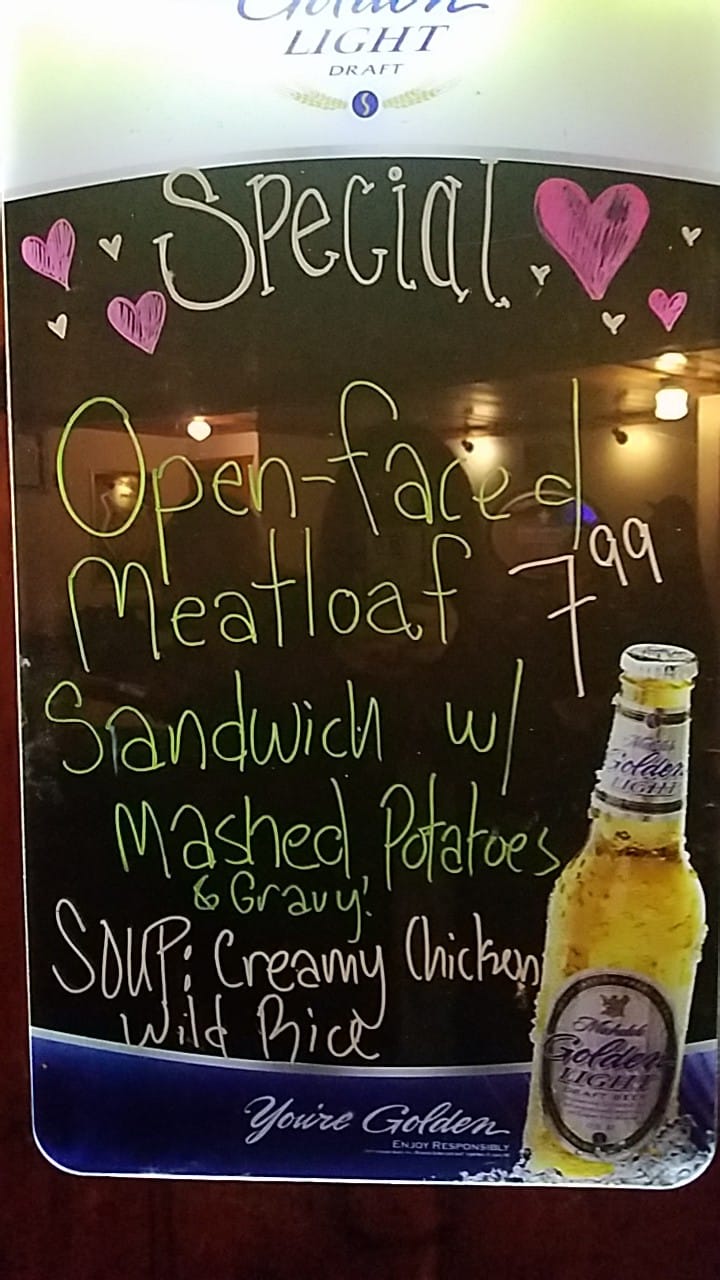 Golden
LIGHT
DRAFT
S
Special
Open-faced
Meatloaf 7.99
Sandwich w/
Mashed Potatoes
& Gravy!
Soup: Creamy Chicken
Wild Rice
Michelob
Golden
LIGHT
Michelob
Golden
LIGHT
DRAFT BEER
You're Golden
ENJOY RESPONSIBLY